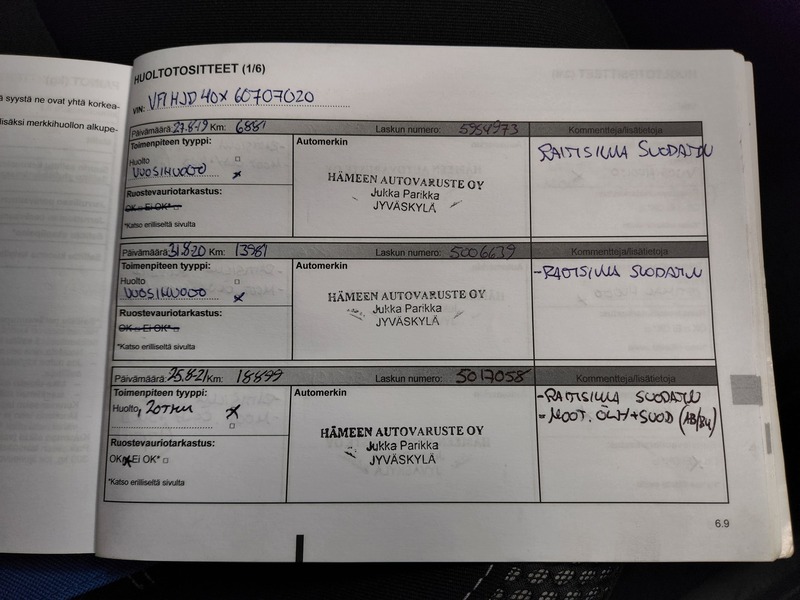 ä syystä ne ovat yhtä korkea-
lisäksi merkkihuollon alkupe-
HUOLTOTOSITTEET (1/6)
VIN: VF1HJD40X60707020
Päivämäärä: 27.8-19 Km: 6881 Laskun numero: 5984973 Kommentteja/lisätietoja
Toimenpiteen tyyppi: Automerkin RAITISILMA SUODATIN
Huolto □
VUOSIHUOLTO x
HÄMEEN AUTOVARUSTE OY
Jukka Parikka
JYVÄSKYLÄ
Ruostevauriotarkastus:
OK □ Ei OK* □
*Katso erilliseltä sivulta
Päivämäärä: 31.8-20 Km: 13981 Laskun numero: 5006639 Kommentteja/lisätietoja
Toimenpiteen tyyppi: Automerkin - RAITISILMA SUODATIN
Huolto □
VUOSIHUOLTO x
HÄMEEN AUTOVARUSTE OY
Jukka Parikka
JYVÄSKYLÄ
Ruostevauriotarkastus:
OK □ Ei OK* □
*Katso erilliseltä sivulta
Päivämäärä: 25.8-21 Km: 18899 Laskun numero: 5017058 Kommentteja/lisätietoja
Toimenpiteen tyyppi: Automerkin - RAITISILMA SUODATIN
Huolto, 20TKM x - MOOT. ÖLJY+SUOD
□
HÄMEEN AUTOVARUSTE OY
Jukka Parikka
JYVÄSKYLÄ
Ruostevauriotarkastus:
OK x Ei OK* □
*Katso erilliseltä sivulta
6.9